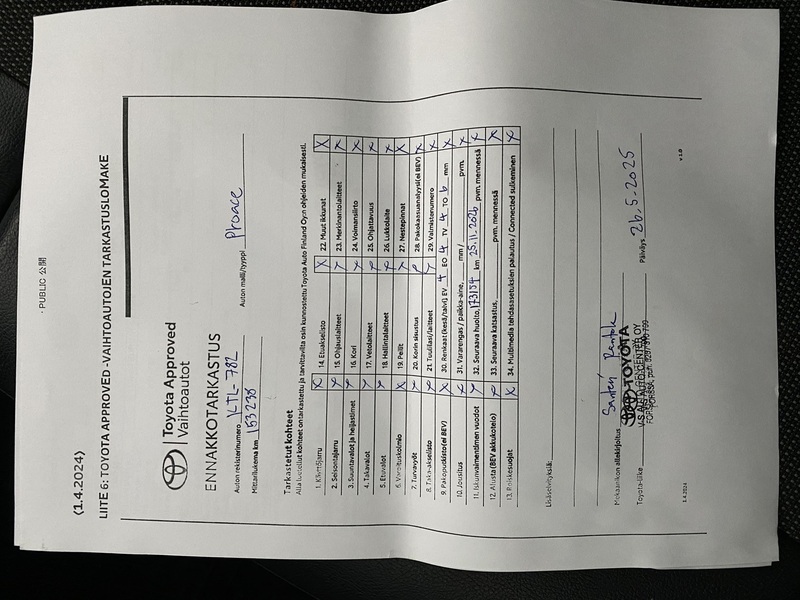 · PUBLIC 公開
(1.4.2024)
LIITE 6: TOYOTA APPROVED -VAIHTOAUTOJEN TARKASTUSLOMAKE
Toyota Approved
Vaihtoautot
ENNAKKOTARKASTUS
Auton rekisterinumero XTL-782 Auton malli/tyyppi Proace
Mittarilukema km 153238
Tarkastetut kohteet
Alla luetellut kohteet on tarkastettu ja tarvittavilta osin kunnostettu Toyota Auto Finland Oy:n ohjeiden mukaisesti.
1. Käsijarru X 14. Etuakselisto X 22. Muut ikkunat X
2. Seisontajarru X 15. Ohjauslaitteet X 23. Merkinantolaitteet X
3. Suuntavalot ja heijastimet X 16. Kori X 24. Voimansiirto X
4. Takavalot X 17. Vetolaitteet X 25. Ohjattavuus X
5. Etuvalot X 18. Hallintalaitteet X 26. Lukkolaite X
6. Varoituskolmio X 19. Peilit X 27. Nestepinnat X
7. Turvavyöt X 20. Korin sisustus X 28. Pakokaasuanalyysi(ei BEV) X
8. Taka-akselisto X 21. Tuulilasi/laitteet X 29. Valmistenumero X
9. Pakoputkisto(ei BEV) X 30. Renkaat (kesä/talvi), EV 4 EO 4 TV 4 TO 6 mm X
10. Jousitus X 31. Vararengas / paikka-aine, mm / pvm. X
11. Iskunvaimentimen vuodot X 32. Seuraava huolto, 173154 km 25.11.2026 pvm. mennessä X
12. Alusta (BEV akkukotelo) X 33. Seuraava katsastus, pvm. mennessä X
13. Roiskesuojat X 34. Multimedia tehdasasetuksien palautus / Connected sulkeminen X
Lisäselvityksiä:
Mekaanikon allekirjoitus Santeri
Toyota-liike TOYOTA Päiväys 26.5-2025
V-S AUTOCENTER OY
1.4.2024 v 1.0